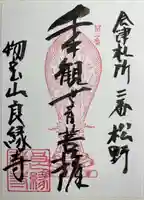 会津札所
三番 松野
千手観世音菩薩
物宝山良縁寺